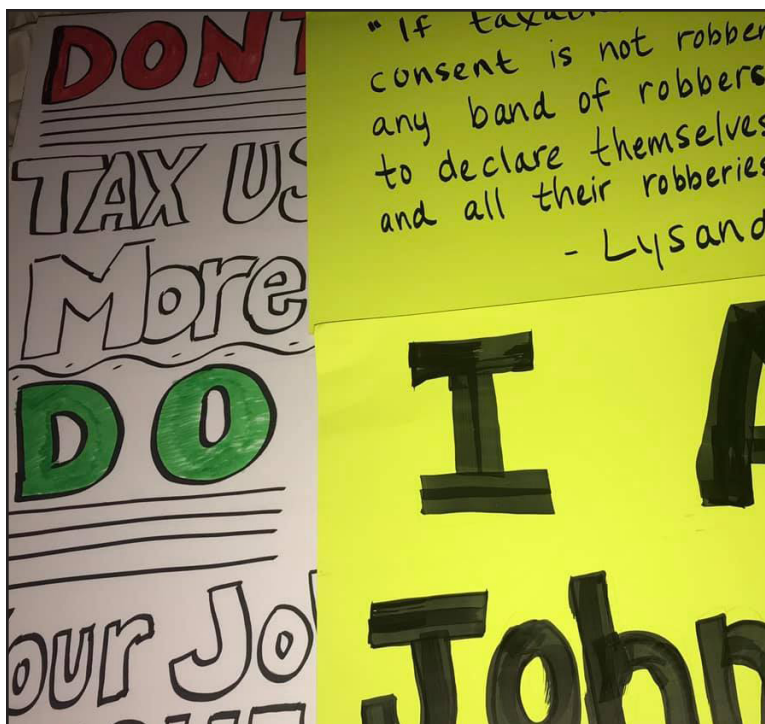 DON'T
TAX US
More
DO
our Jo
" If
consent is not robber
any band of robbers
to declare themselves
and all their robberies
- Lysand
I A
John